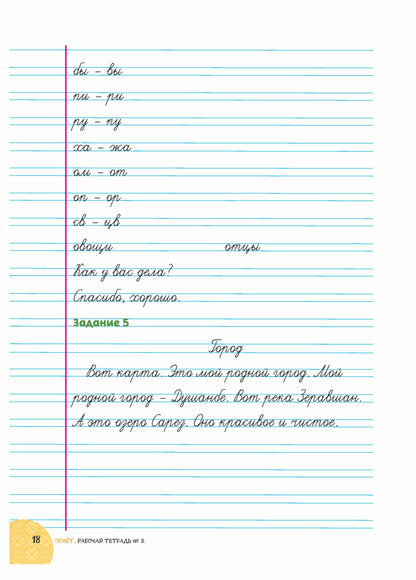 бы – вы
пи – ри
ру – пу
ха – жа
ом – от
оп – ор
св – цв
овощи отцы
Как у вас дела?
Спасибо, хорошо.
Задание 5
Город
Вот карта. Это мой родной город. Мой
родной город – Душанбе. Вот река Зеравшан.
А это озеро Сарез. Оно красивое и чистое.
18 ПОЛЁТ. РАБОЧАЯ ТЕТРАДЬ № 2.